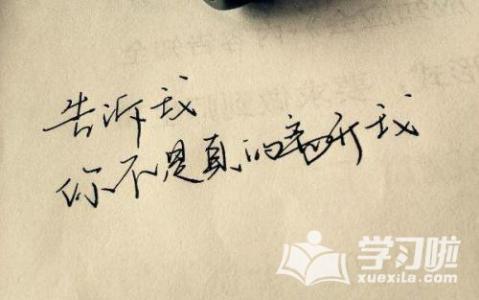 告诉我
你不是真的离开我
学习啦
xuexila.com